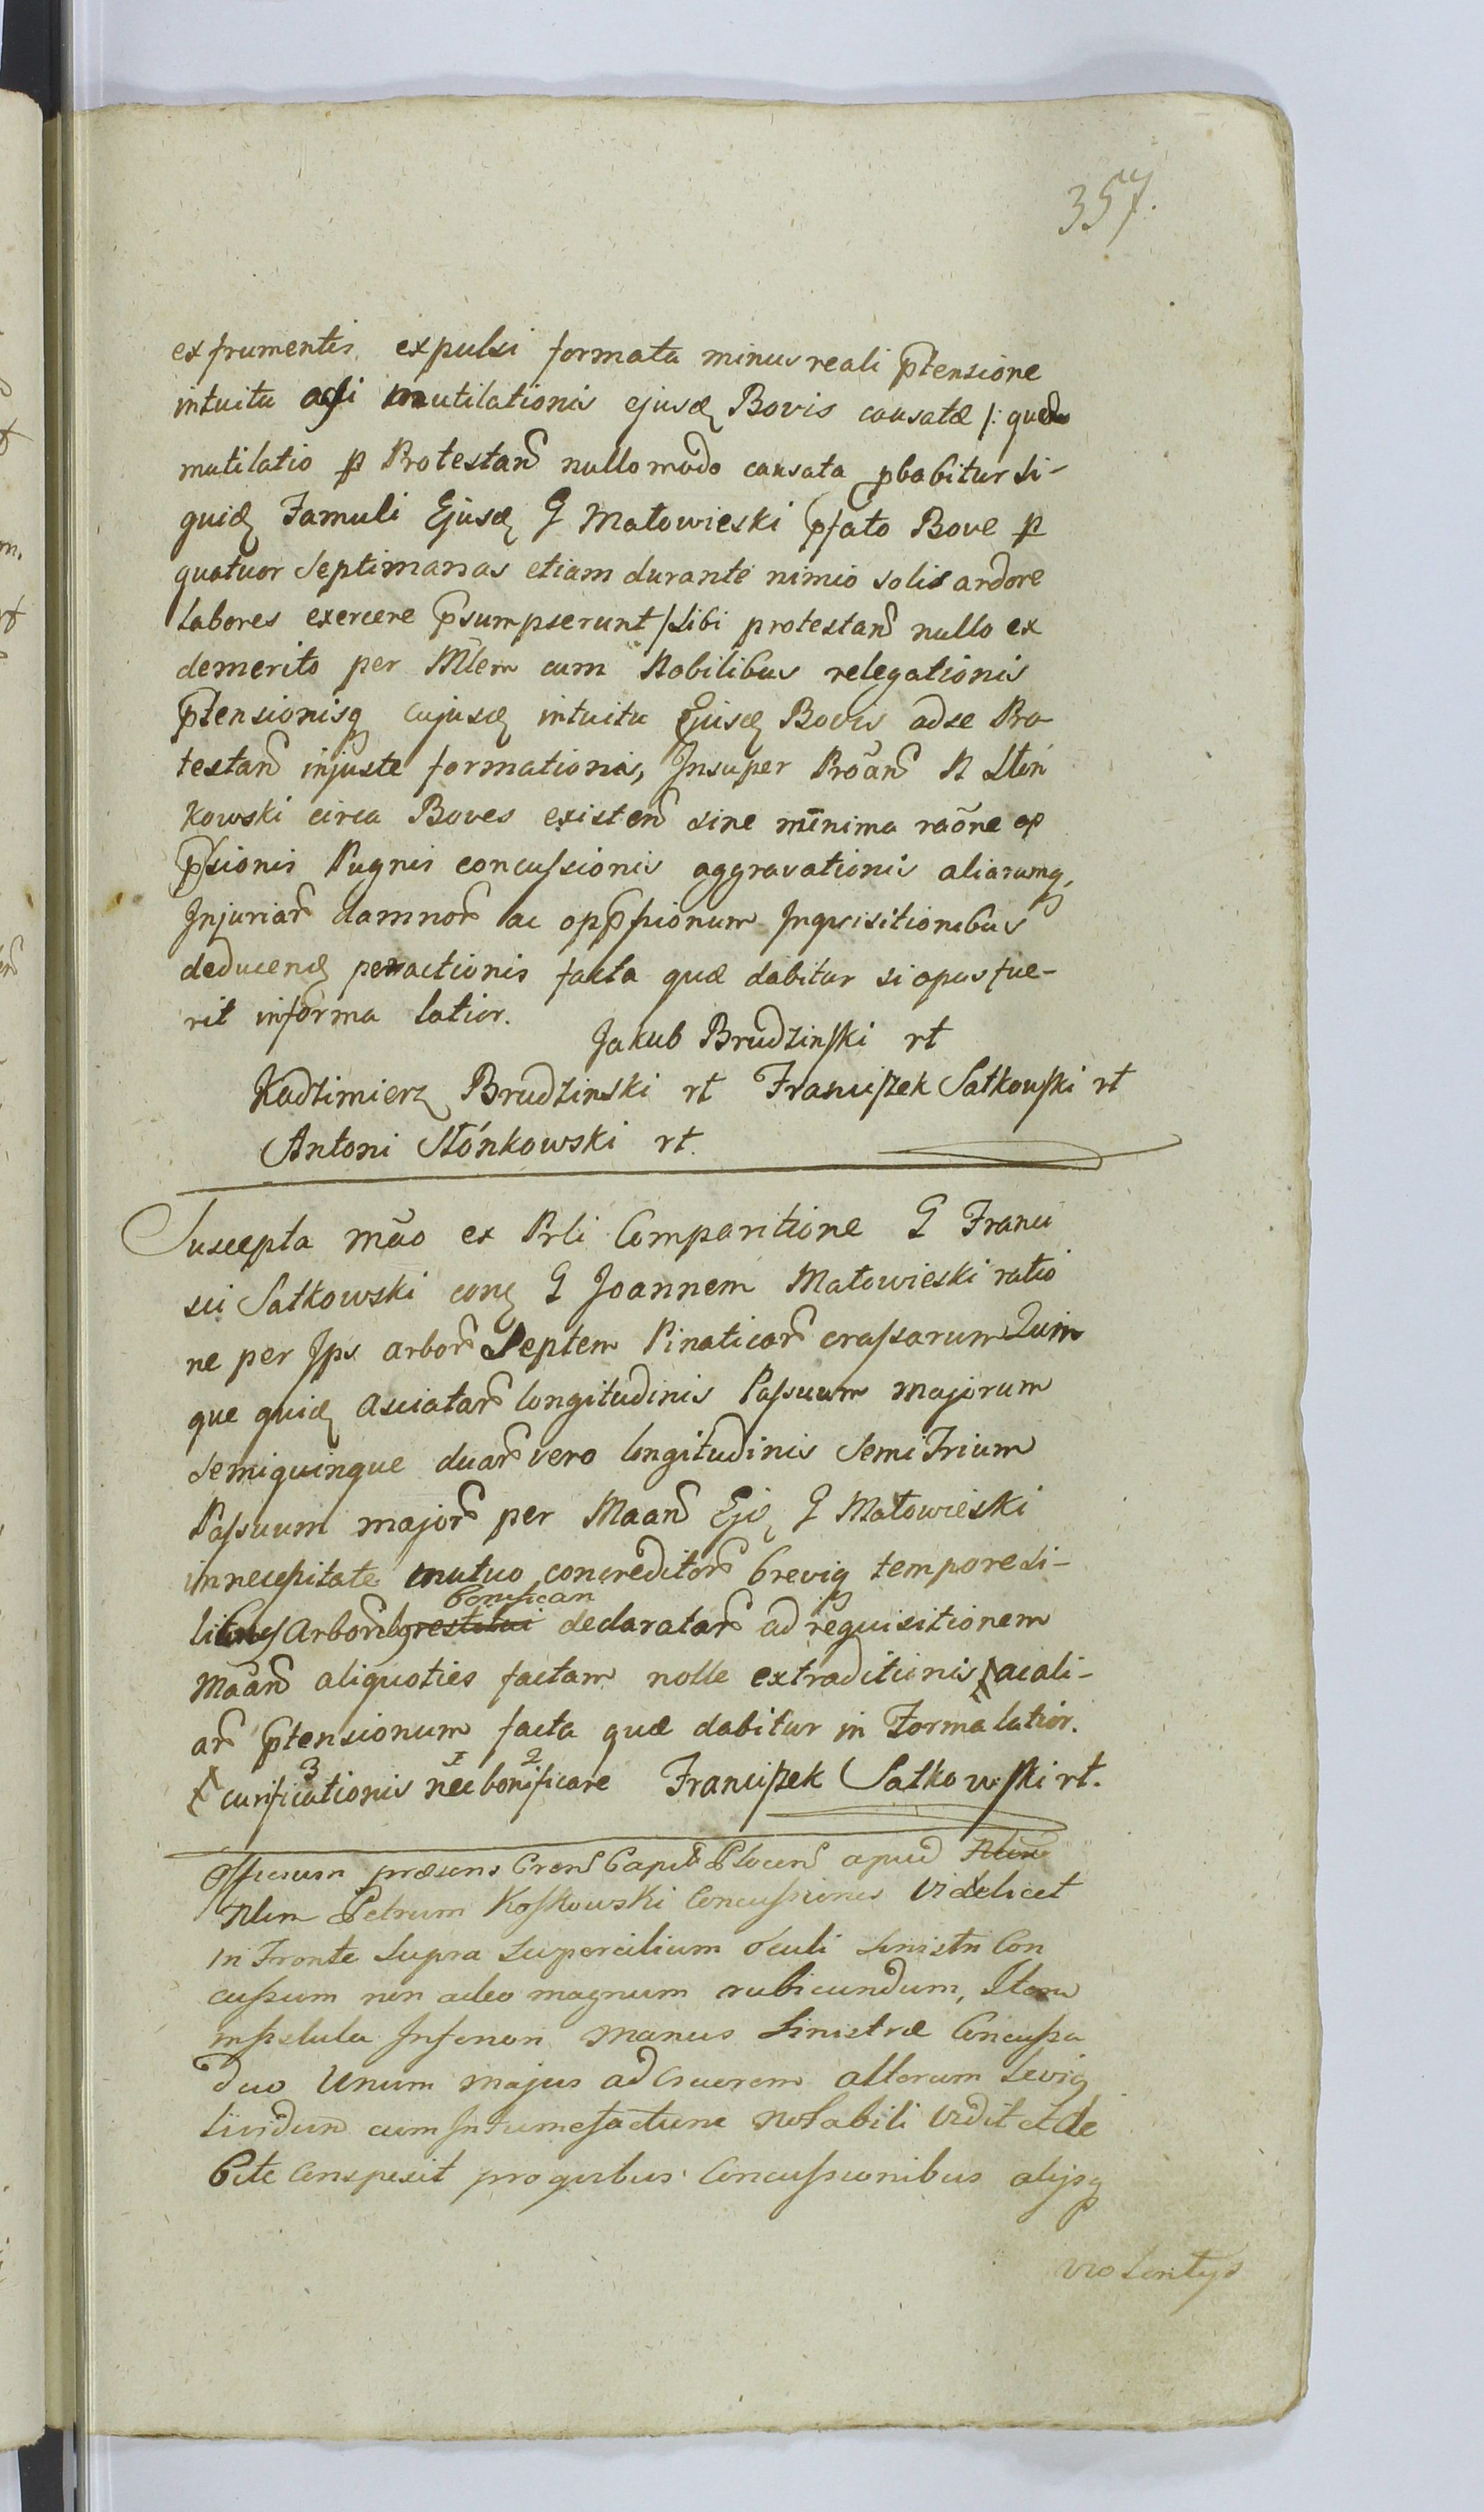 357.
ex frumentis expulsi formata minus reali p̄tensione
intuitu acsi mutilationis ejusd Bovis causatæ /: quæ
mutilatio p Protestan nullo modo causata pbabitur si-
quid Famuli Ejusd G Małowieski p̄fato Bove p
quatuor Septimanas etiam durante nimio solis ardore
labores exercere p̄sumpserunt / sibi protestan nullo ex
demerito per Mlem cum Nobilibus relegationis
p̄tensionisq cujusd intuitu Ejusd Bovis ad se Pro-
testan injuste formationis, Insuper Proan N Słón
kowski circa Boves existen sine minima raõne op
p̄sionis Pugnis concussionis aggravationis aliarumq,
Injuriar damnor ac opp̄ssionum Inquisitionibus
deducend peractionis facta quæ dabitur si opus fue-
rit in forma latior.
Jakub Brudzinski rt
Kadzimierz Brudzinski rt Franciszek Satkowski rt
Antoni Słónkowski rt.
Suscepta mão ex Prli Comparitione G Franci
sci Satkowski con G Joannem Małowieski ratio
ne per Ips arbor Septem Pinaticar crassarum Quin
que quid asciatar longitudinis Passuum majorum
semiquinque duar vero longitudinis semi Trium
Passuum major per Maan Ejd G Małowieski
in necessitate mutuo concreditor breviq tempore si-
libus Arboribq restitui bonifican declaratar ad requisitionem
Maan aliquoties factam nolle extraditionis ac ali-
ar p̄tensionum facta quæ dabitur in Forma latior.
curificationis 3 nec 1 bonificare 2 Franciszek Satkowski rt.
Officium præsens Cren Capit Plocen apud Nlem
Nlem Petrum Koskowski Concussiones videlicet
in Fronte supra supercilium oculi sinistri Con
cussum non adeo magnum rubicundum, Item
in Inferiori manus sinistræ Concussa
duo Unum majus ad cruorem alterum
lividum cum Intumefactione notabili vidit et de
bite conspexit pro quibus Concussionibus alijsq
violentijs